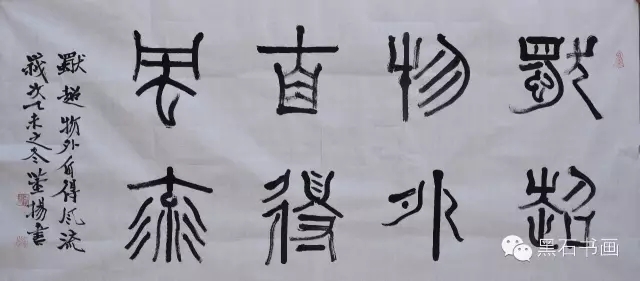 獨超
物外
自得
風流
獨超物外自得風流
歲次乙未之冬楊書
黑石书画